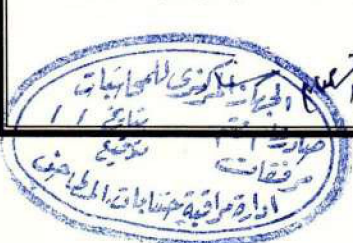 الجهاز المركزى للمحاسبات
صادر رقم تاريخ / /
مرفقات توقيع
ادارة مراقبة حسابات المطاحن